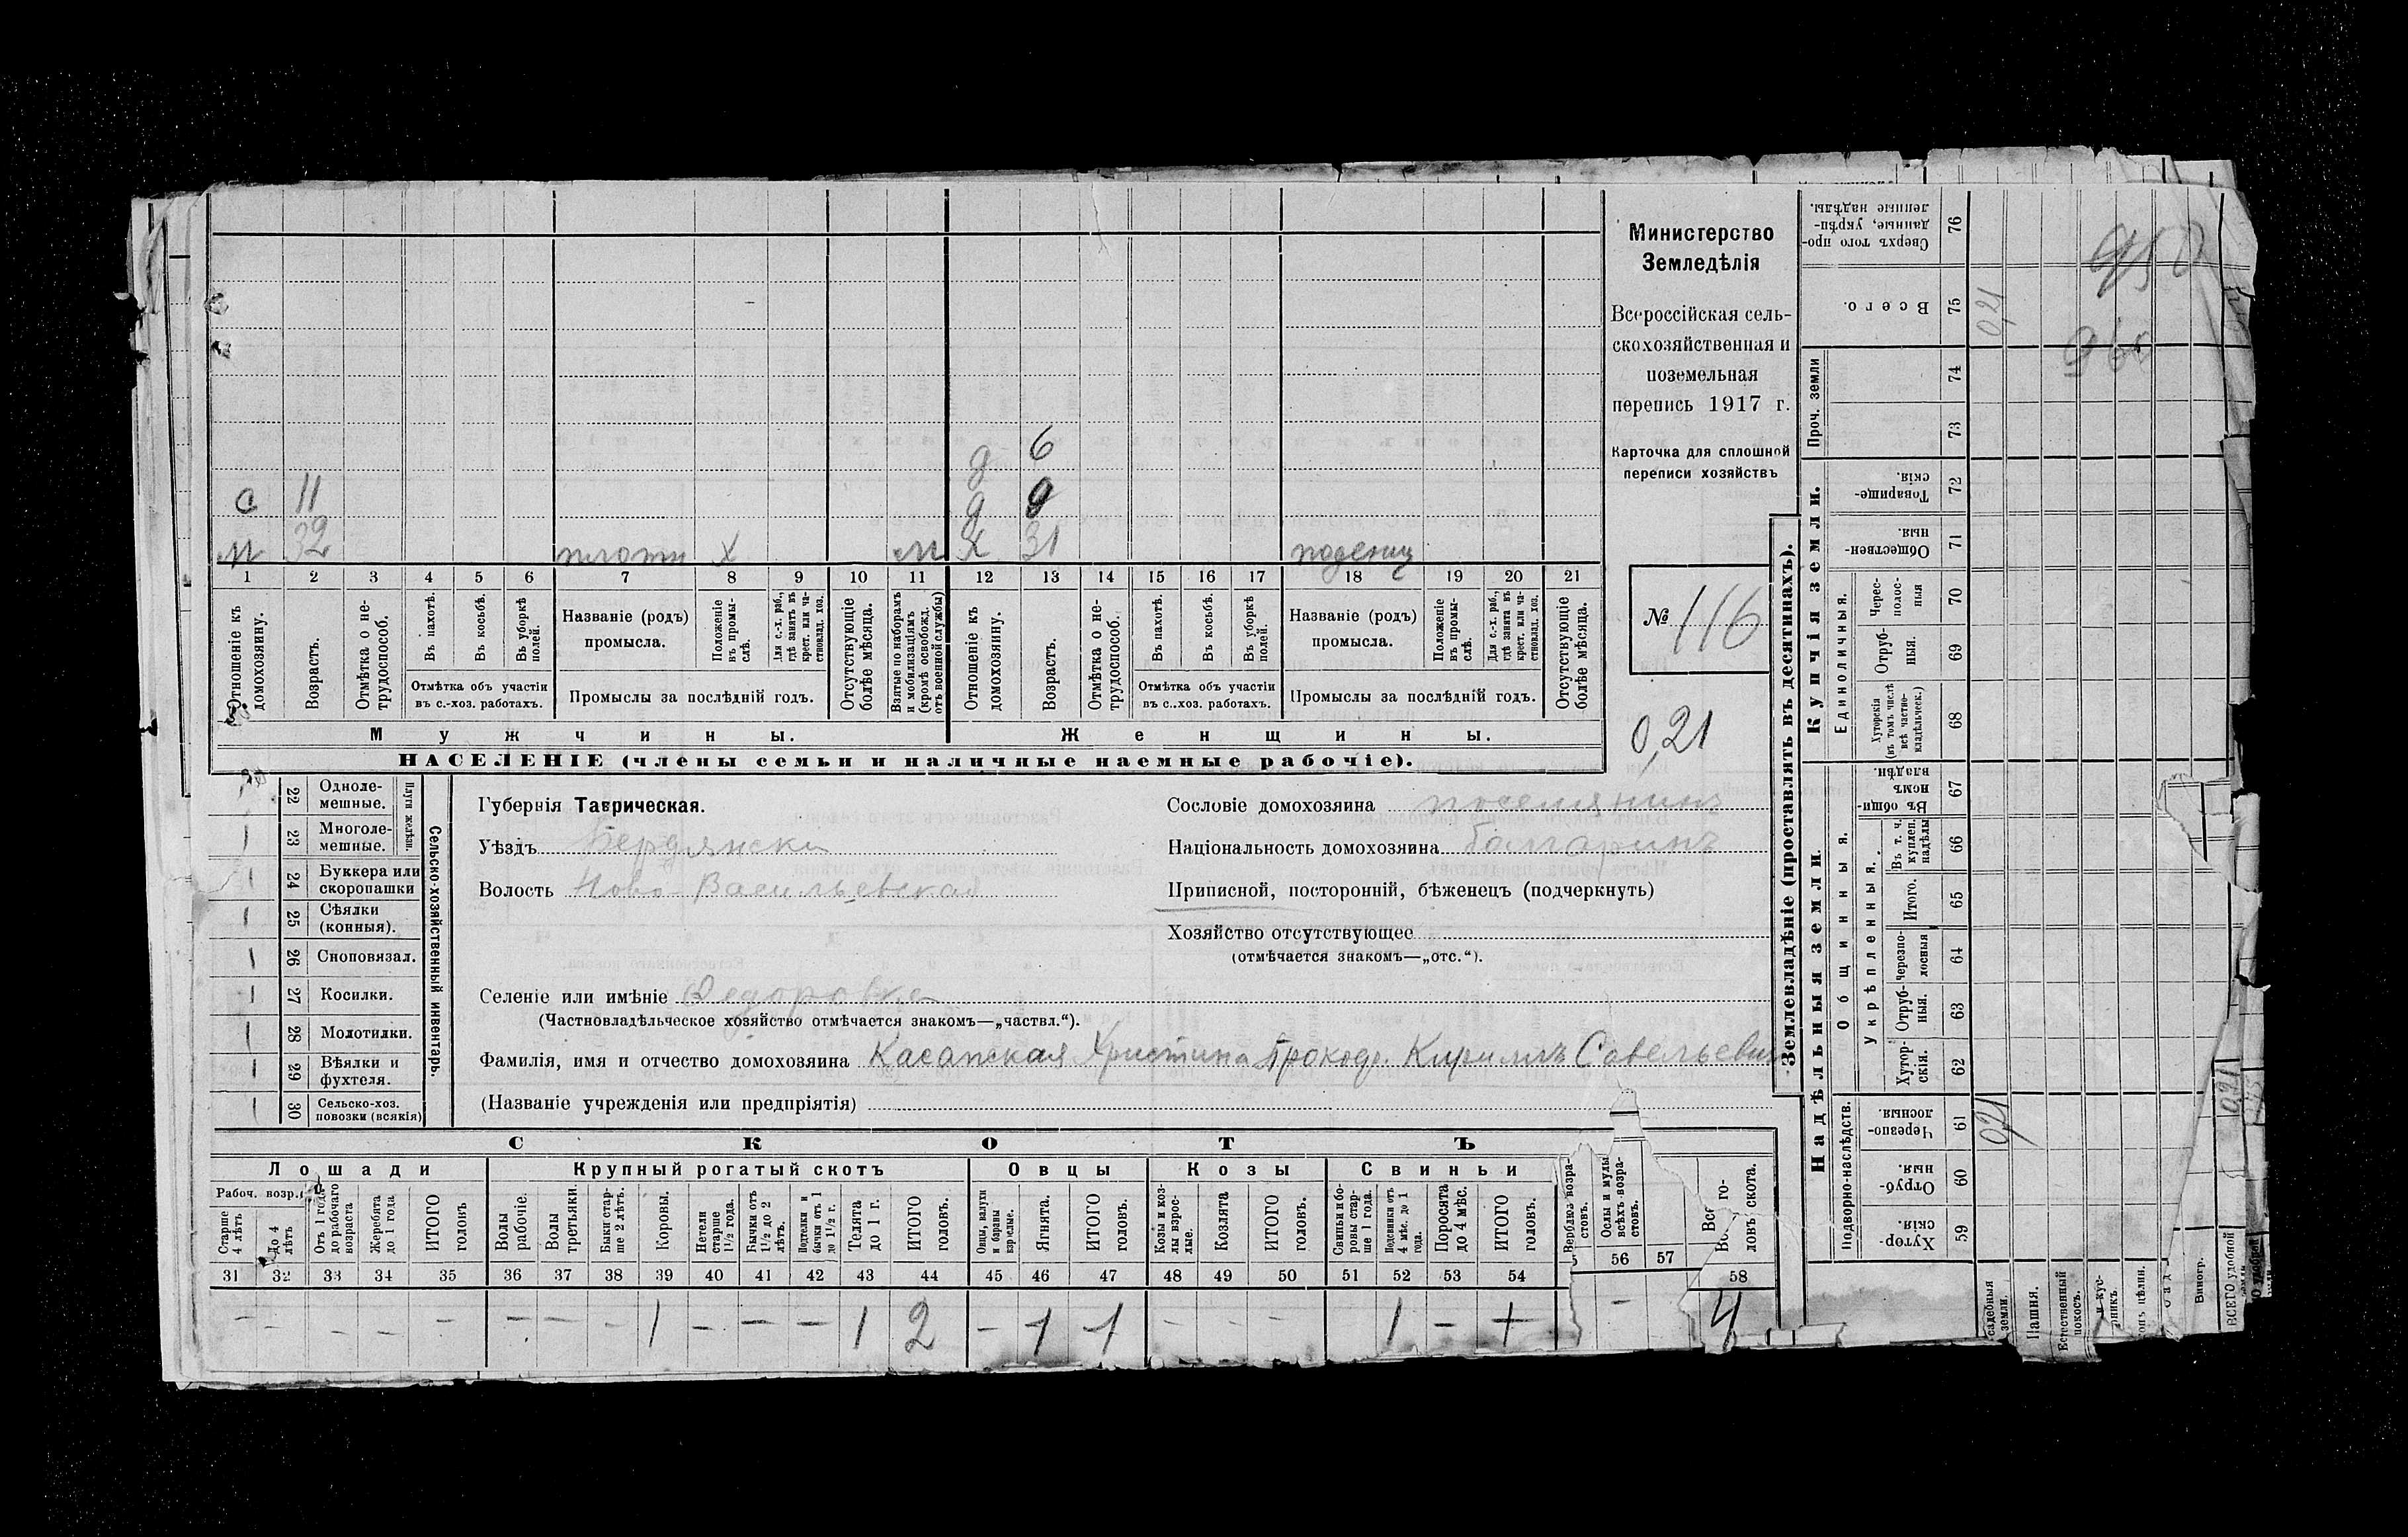 6
д
с 11 д 9
м 32 плотн х м Ж 31 поденщ
1 2 3 4 5 6 7 8 9 10 11 12 13 14 15 16 17 18 19 20 21
Отношеніе къ домохозяину.
Возрастъ.
Отмѣтка о не-
трудоспособ.
Въ пахотѣ.
Въ косьбѣ.
Въ уборкѣ
полей.
Отмѣтка объ участіи
въ с.-хоз. работахъ.
Названіе (родъ)
промысла.
Положеніе
въ промы-
слѣ.
Для с.-х. раб.,
гдѣ занятъ въ
крест. или ча-
стновлад. хоз.
Промыслы за послѣдній годъ.
Отсутствующіе
болѣе мѣсяца.
Взятые по наборамъ
и мобилизаціямъ
(кромѣ освобожд.
отъ военной службы)
Отношеніе къ
домохозяину.
Возрастъ.
Отмѣтка о не-
трудоспособ.
Въ пахотѣ.
Въ косьбѣ.
Въ уборкѣ
полей.
Отмѣтка объ участіи
въ с..хоз. работахъ.
Названіе (родъ)
промысла.
Положеніе
въ промы-
слѣ.
Для с.-х. раб.,
гдѣ занята въ
крест. или ча-
стновлад. хоз.
Промыслы за послѣдній годъ.
Отсутствующіе
болѣе мѣсяца.
Мужчины.
Женщины.
НАСЕЛЕНІЕ (члены семьи и наличные наемные рабочіе).
Министерство
Земледѣлія
Всероссійская сель-
скохозяйственная и
поземельная
перепись 1917 г.
Карточка для сплошной
переписи хозяйствъ
№ 116
0,21
22 Одноле-
мешные.
23 Многоле-
мешные.
Плуги желѣзн.
24 Буккера или
скоропашки
25 Сѣялки
(конныя).
26 Сноповязал.
27 Косилки.
28 Молотилки.
29 Вѣялки и
фухтеля.
30 Сельско-хоз.
повозки (всякія)
Сельско-хозяйственный инвентарь.
Губернія Таврическая.
Уѣздъ Бердянски
Волость Ново-Васильевская
Сословіе домохозяина поселянинъ
Національность домохозяина болгаринъ
Приписной, посторонній, бѣженецъ (подчеркнуть)
Хозяйство отсутствующее
(отмѣчается знакомъ—„отс.“).
Селеніе или имѣніе Федоровка
(Частновладѣльческое хозяйство отмѣчается знакомъ—„частвл.“).
Фамилія, имя и отчество домохозяина Касапская Христина Прокоф. Кириллъ Савельевич
(Названіе учрежденія или предпріятія)
СКОТЪ
Лошади
Крупный рогатый скотъ
Овцы
Козы
Свиньи
Рабоч. возр.
Старше
4 лѣтъ
До 4
лѣтъ
Отъ 1 года
до рабочаго
возраста
Жеребята
до 1 года
ИТОГО
головъ
Волы
рабочіе.
Волы
третьяки.
Быки стар-
ше 2 лѣтъ.
Коровы.
Нетели
старше
1½ года.
Бычки отъ
1½ до 2
лѣтъ.
Подтелки и
бычки отъ 1
до 1½ г.
Телята
до 1 г.
ИТОГО
головъ.
Овцы, валухи
и бараны
взрослые.
Ягнята.
ИТОГО
головъ.
Козы и коз-
лы взрос-
лые.
Козлята
ИТОГО
головъ.
Свиньи бо-
ровы стар-
ше 1 года.
Подсвинки отъ
4 мѣс. до 1
года.
Поросята
до 4 мѣс.
ИТОГО
головъ.
Верблюд возра-
стовъ.
Ослы и мулы
всѣхъ возра-
стовъ.
ловъ скота.
31 32 33 34 35 36 37 38 39 40 41 42 43 44 45 46 47 48 49 50 51 52 53 54 56 57 58
– – – – – – – – 1 – – – 1 2 – 1 1 – – – 1 – 1 – 4
Землевладѣніе (проставлять въ десятинахъ).
Надѣльныя земли.
Купчія земли.
Проч. земли
Подворно-наслѣдств.
Общинныя.
Укрѣпленныя.
Единоличныя.
Сверхъ того про-
данные, укрѣп-
ленные надѣлы.
76
Всего.
75 0,21
74
73
Товарище-
скія.
72
Обществен-
ныя.
71
Черес-
полос-
ныя
70
Отруб-
ныя.
69
Хуторскія
(въ томъ числѣ
всѣ частно-
владѣльческ.)
68
Въ общин-
номъ
владѣн.
67
Въ т. ч.
куплен.
надѣлы
66
Итого.
65
Черезпо-
лосныя
64
Отруб-
ныя.
63
Хутор-
скія.
62
Черезпо-
лосныя.
61 0,21
Отруб-
ныя.
60
Хутор-
скія.
59
садебныя
земли.
Пашня.
Естественный
покосъ.
Виногр.
ВСЕГО удобной
0,21